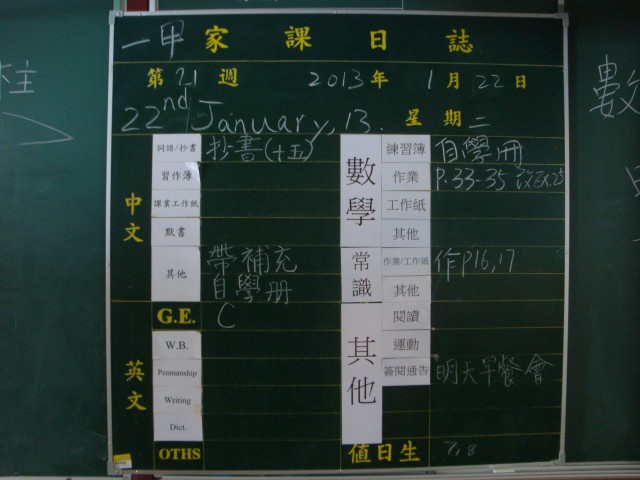 一甲 家課日誌
第 21 週 2013年 1月22日
22nd January, 13. 星期二
中文
詞語/抄書 抄書(十五)
習作簿
課業工作紙
默書
其他 帶補充
自學册
英文
G.E. C
W.B.
Penmanship
Writing
Dict.
OTHS
數學
練習簿 自學冊
作業 P.33-35
工作紙
其他
常識
作業/工作紙 作p16,17
其他
其他
閱讀
運動
簽閱通告 明天早餐會
值日生 7,8
數